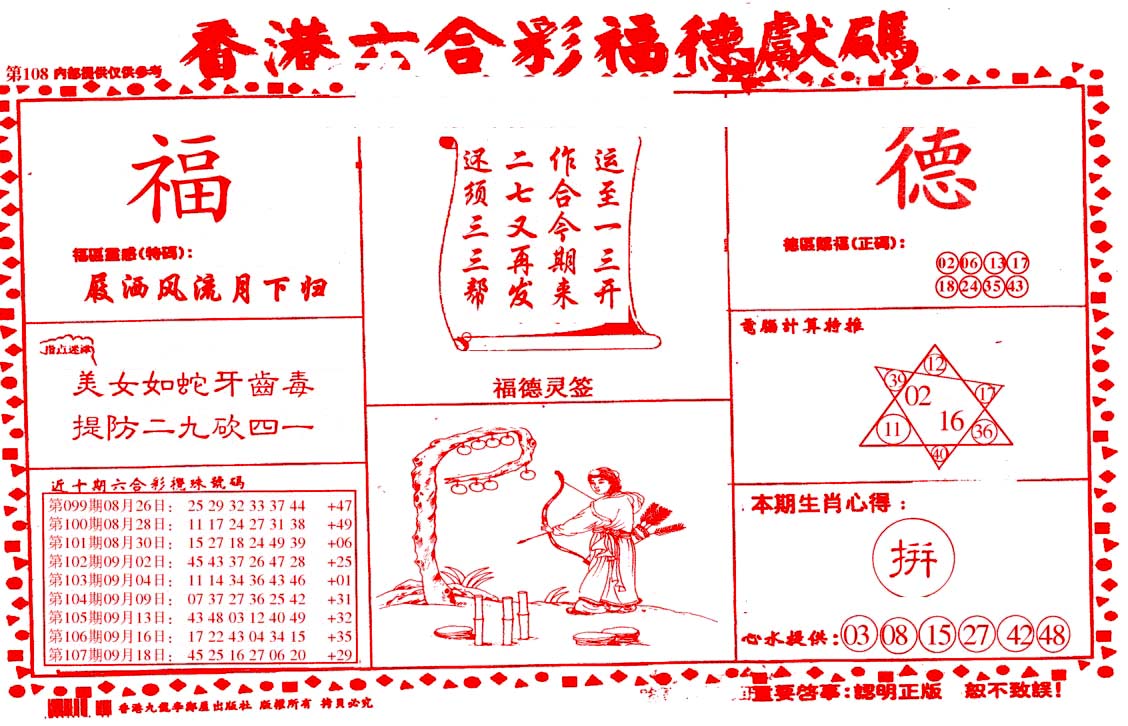 香港六合彩福德獻碼
第108 内部提供仅供参考
福
福區靈感(特碼):
屐洒风流月下归
指点迷津
美女如蛇牙齒毒
提防二九砍四一
近十期六合彩攪珠號碼
第099期08月26日: 25 29 32 33 37 44 +47
第100期08月28日: 11 17 24 27 31 38 +49
第101期08月30日: 15 27 18 24 49 39 +06
第102期09月02日: 45 43 37 26 47 28 +25
第103期09月04日: 11 14 34 36 43 46 +01
第104期09月09日: 07 37 27 36 25 42 +31
第105期09月13日: 43 48 03 12 40 49 +32
第106期09月16日: 17 22 43 04 34 15 +35
第107期09月18日: 45 25 16 27 06 20 +29
运至一三开
作合今期来
二七又再发
还须三三帮
福德灵签
德
德區賜福(正碼):
02 06 13 17
18 24 35 43
電腦計算特推
12
39 02 17
11 16 36
40
本期生肖心得:
拼
心水提供: 03 08 15 27 42 48
重要啓事:認明正版 恕不致誤!
版權所有 拷貝必究